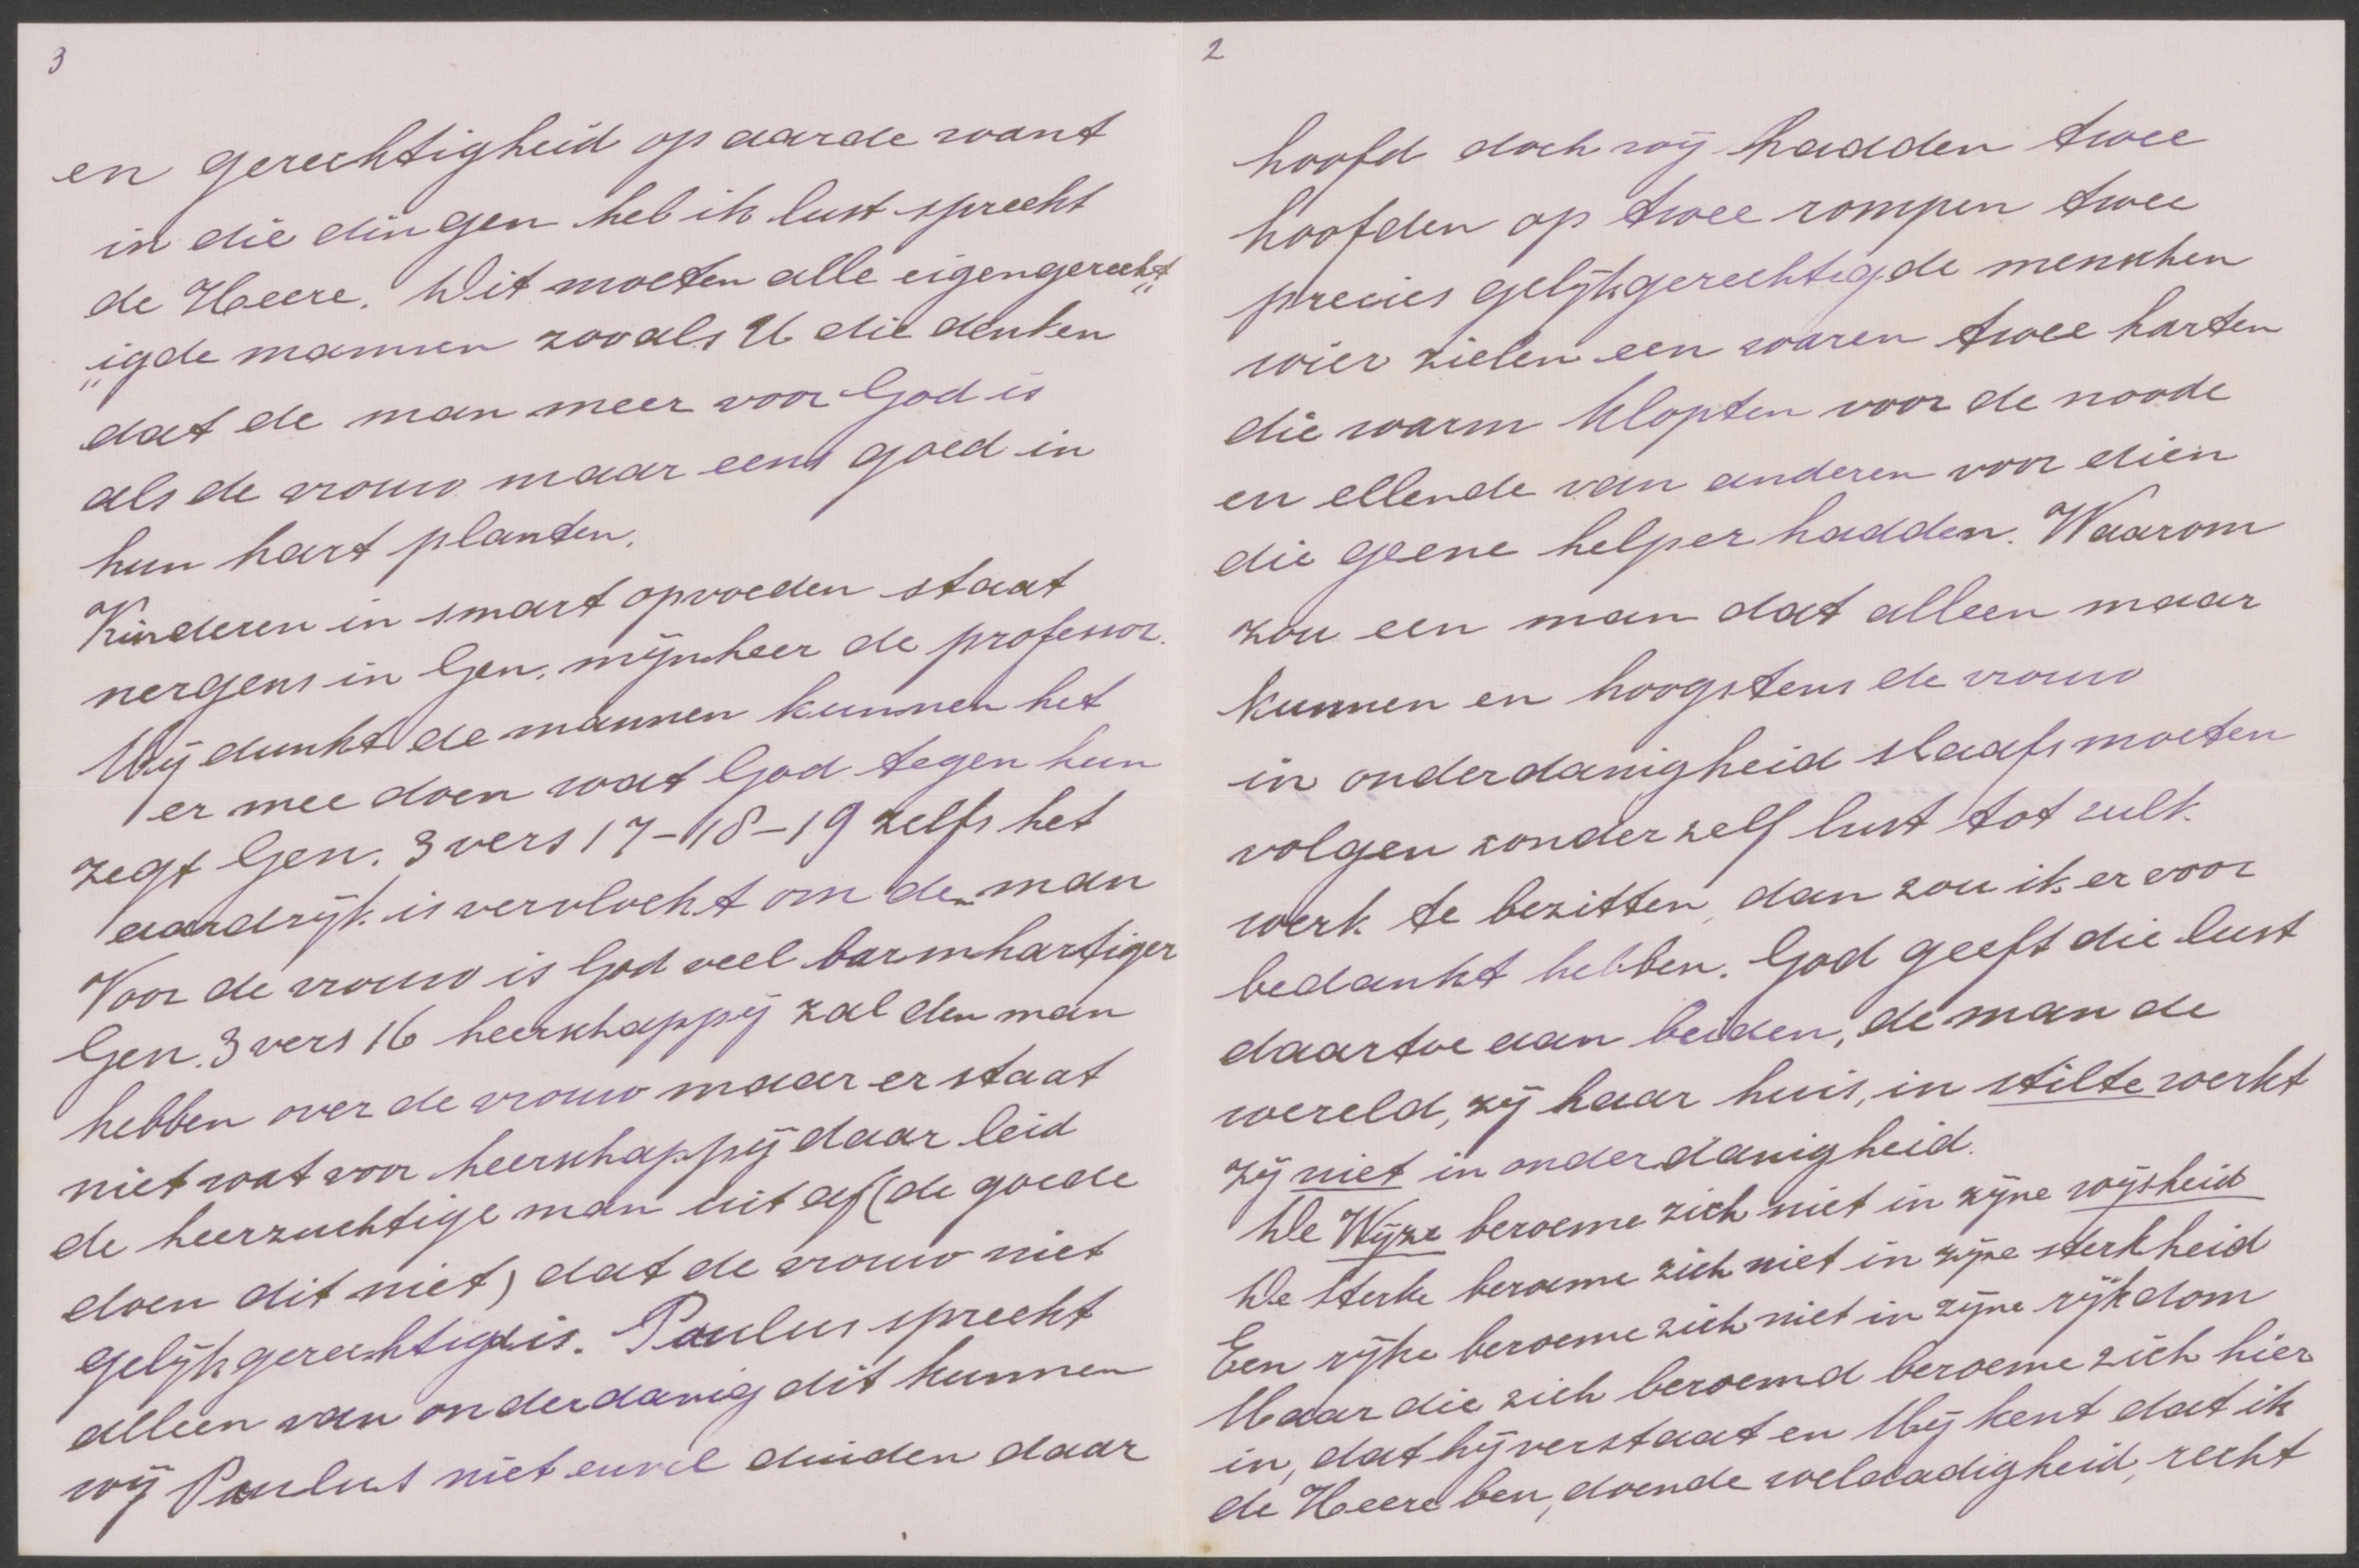 3
en gerechtigheid op aarde want
in die dingen heb ik lust spreekt
de Heere. Dit moeten alle eigengerecht„
„igde mannen zooals U die denken
dat de man meer voor God is
als de vrouw maar eens goed in
hun hart planten.
Kinderen in smart opvoeden staat
nergens in Gen. mijnheer de professor.
Mij dunkt de mannen kunnen het
er mee doen wat God tegen hun
zegt Gen. 3 vers 17-18-19 zelfs het
aardrijk is vervloekt om de man
Voor de vrouw is God veel barmhartiger
Gen. 3 vers 16 heerschappij zal den man
hebben over de vrouw maar er staat
niet wat voor heerschappij daar leid
de heerzuchtige man uit af (de goede
doen dit niet) dat de vrouw niet
gelijkgerechtigd is. Paulus spreekt
alleen van onderdanig dit kunnen
wij Paulus niet euvel duiden daar
2
hoofd doch wij hadden twee
hoofden op twee rompen twee
precies gelijkgerechtigde menschen
wier zielen een waren twee harten
die warm klopten voor de noode
en ellende van anderen voor dien
die geene helper hadden. Waarom
zou een man dat alleen maar
kunnen en hoogstens de vrouw
in onderdanigheid slaafs moeten
volgen zonder zelf lust tot zulk
werk te bezitten, dan zou ik er voor
bedankt hebben. God geeft die lust
daartoe aan beiden, de man de
wereld, zij haar huis, in stilte werkt
zij niet in onderdanigheid.
De Wijze beroeme zich niet in zijne wijsheid
De Sterke beroeme zich niet in zijne sterkheid
Een rijke beroeme zich niet in zijne rijkdom
Maar die zich beroemd beroeme zich hier
in, dat hij verstaat en Mij kent dat ik
de Heere ben, doende weldadigheid, recht